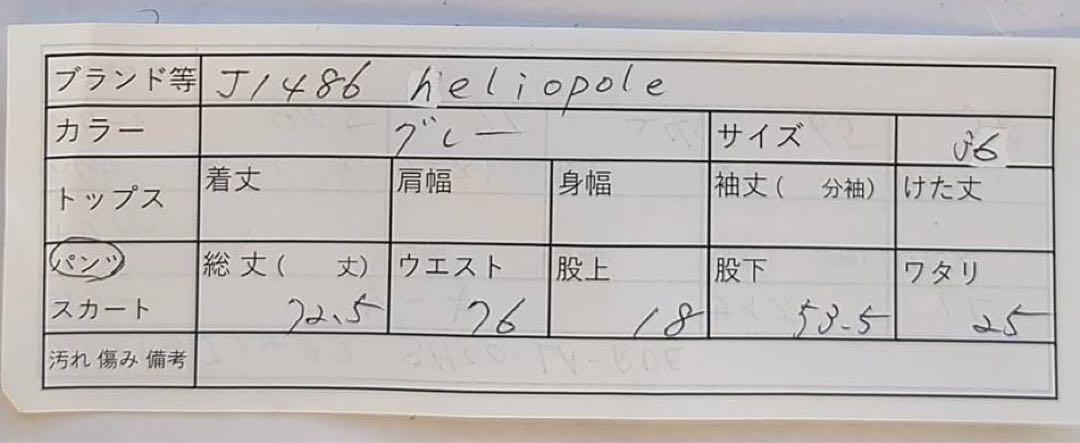 ブランド等 J1486 heliopole
カラー グレー サイズ 36
トップス 着丈 肩幅 身幅 袖丈( 分袖) けた丈
パンツ 総丈( 丈) ウエスト 股上 股下 ワタリ
スカート 72.5 76 18 53.5 25
汚れ 傷み 備考